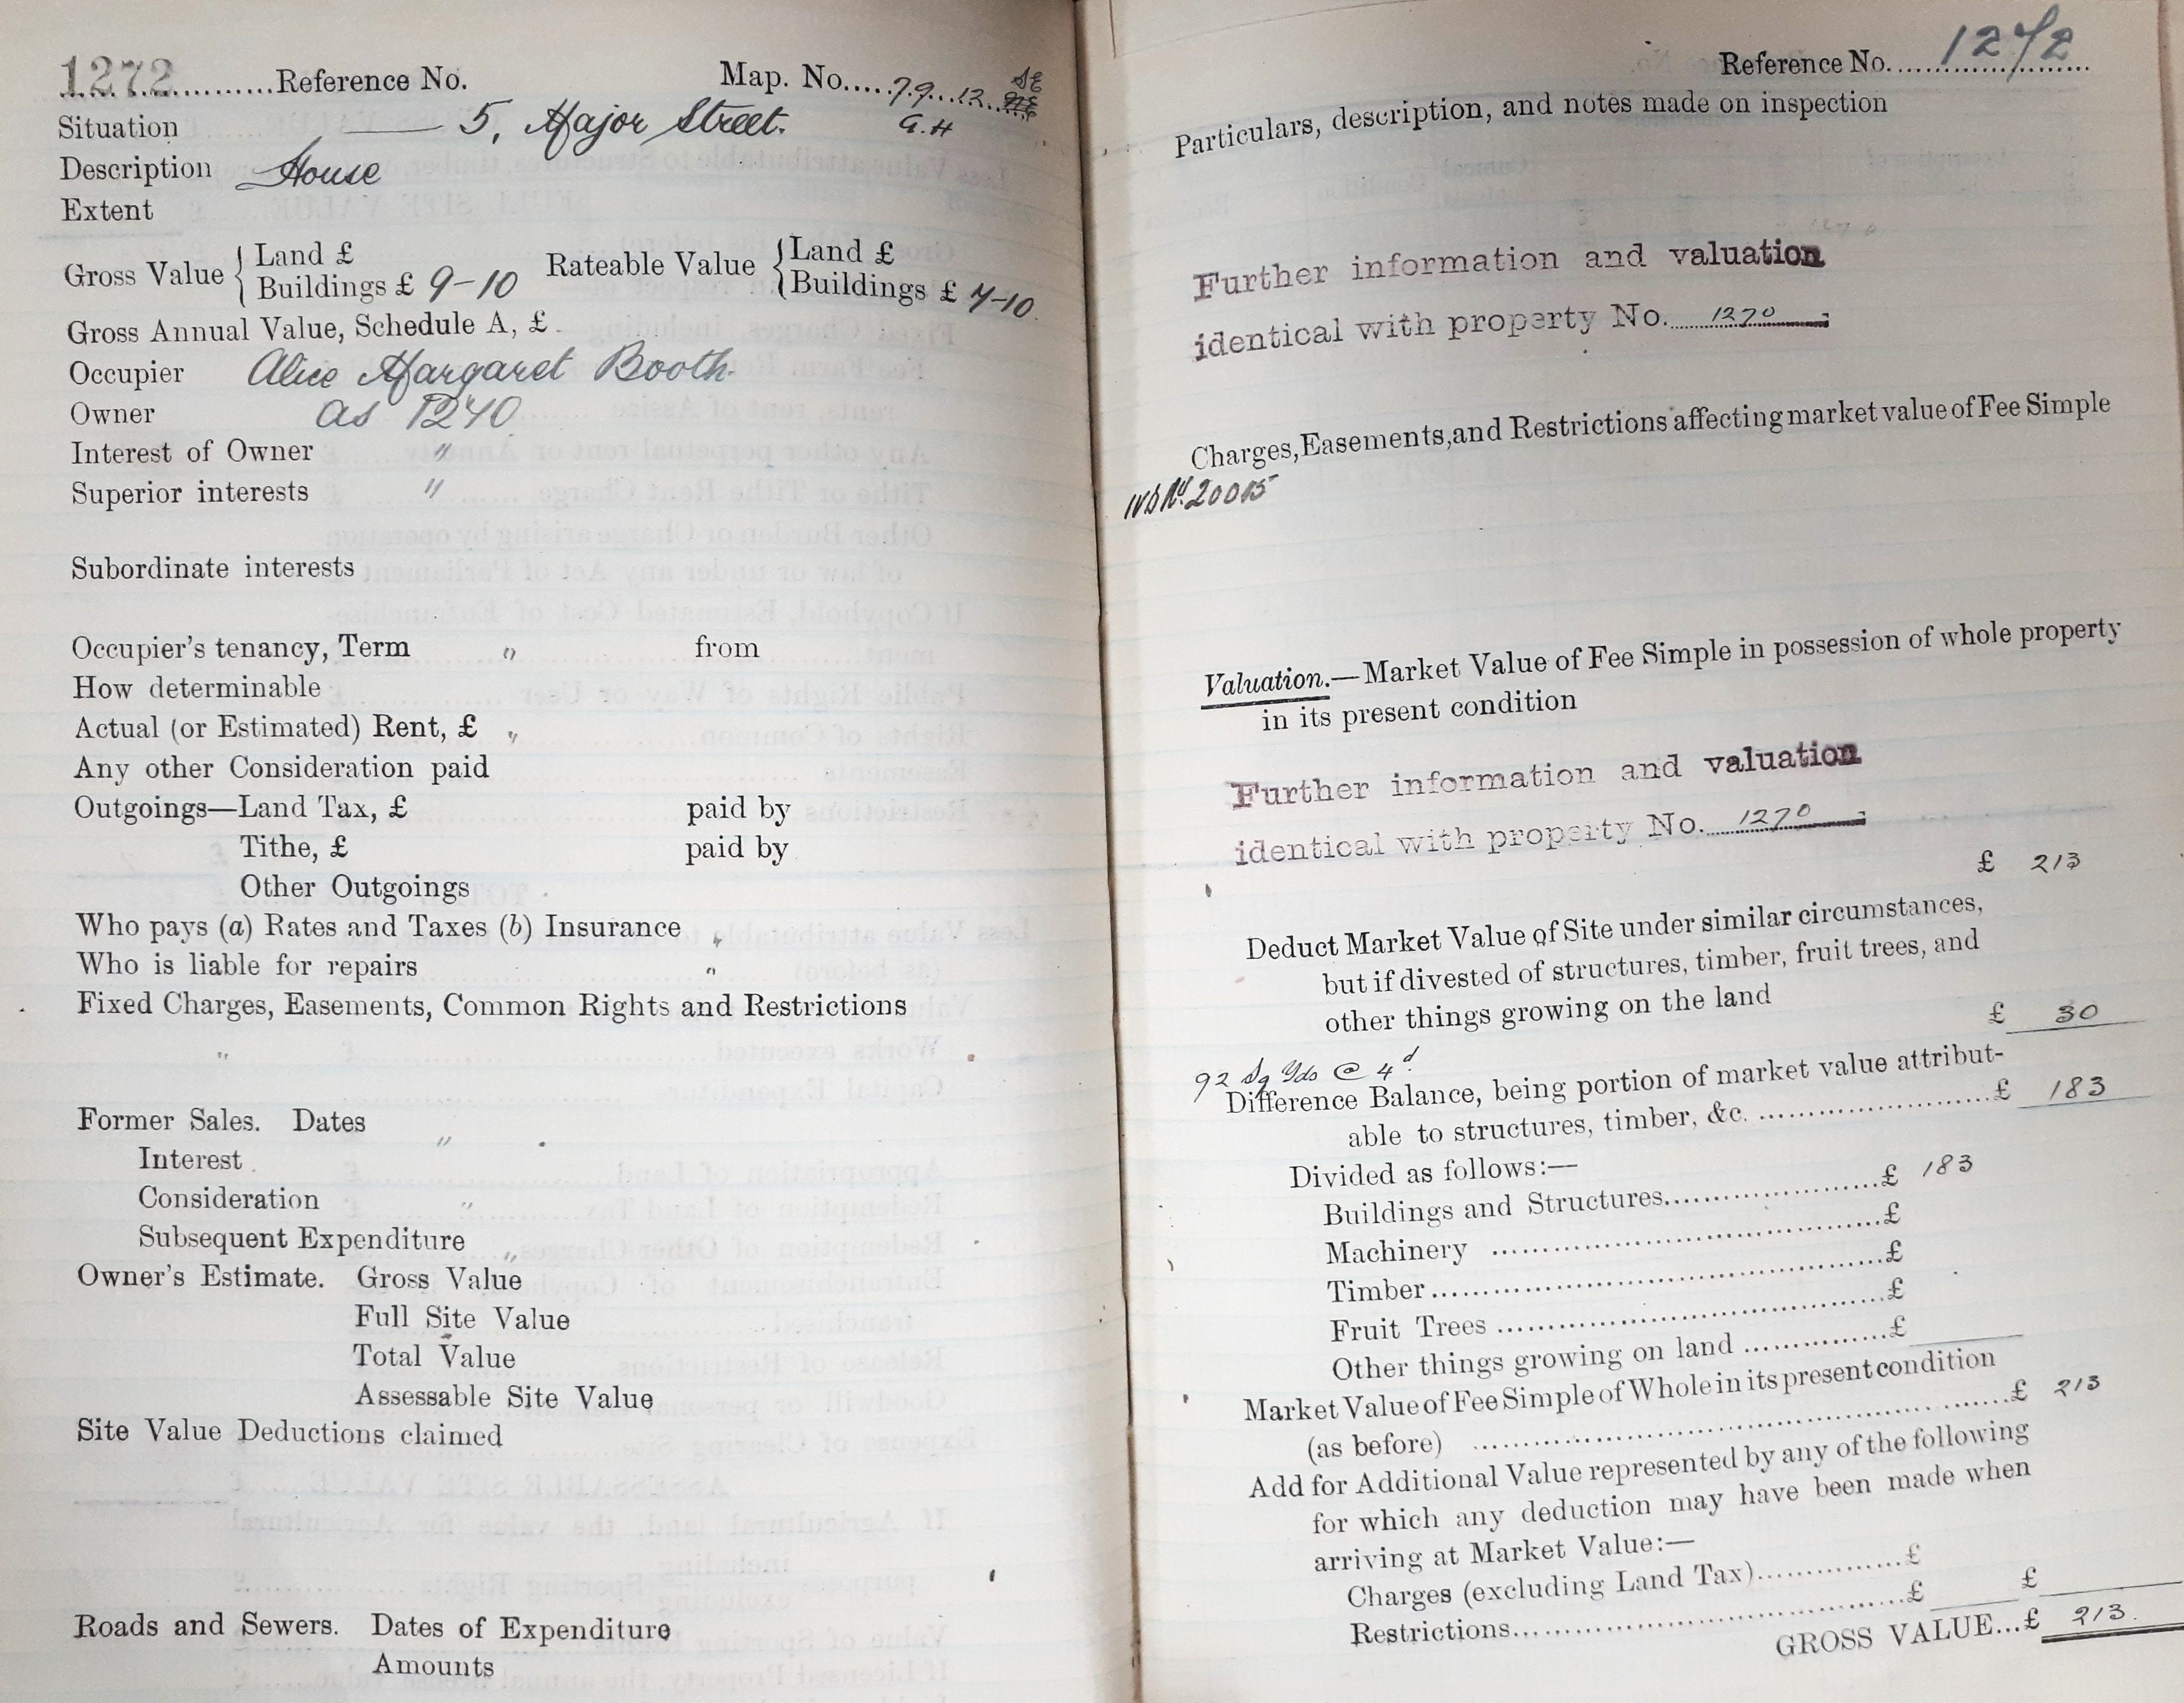 1272 Reference No. Map. No. 79.12. SE
G.H
Situation — 5, Major Street.
Description House
Extent
Gross Value { Land £
Buildings £ 9-10
Rateable Value { Land £
Buildings £ 7-10
Gross Annual Value, Schedule A, £
Occupier Alice Margaret Booth
Owner as 1270
Interest of Owner "
Superior interests "
Subordinate interests
Occupier's tenancy, Term " from
How determinable
Actual (or Estimated) Rent, £ "
Any other Consideration paid
Outgoings—Land Tax, £ paid by
Tithe, £ paid by
Other Outgoings
Who pays (a) Rates and Taxes (b) Insurance "
Who is liable for repairs "
Fixed Charges, Easements, Common Rights and Restrictions
"
Former Sales. Dates "
Interest
Consideration "
Subsequent Expenditure "
Owner's Estimate. Gross Value
Full Site Value
Total Value
Assessable Site Value
Site Value Deductions claimed
Roads and Sewers. Dates of Expenditure
Amounts
Reference No. 1272
Particulars, description, and notes made on inspection
Further information and valuation
identical with property No. 1270
Charges, Easements, and Restrictions affecting market value of Fee Simple
20015
Valuation.—Market Value of Fee Simple in possession of whole property
in its present condition
Further information and valuation
identical with property No. 1270
£ 213
Deduct Market Value of Site under similar circumstances,
but if divested of structures, timber, fruit trees, and
other things growing on the land
£ 30
92 Sq Yds @ 4d.
Difference Balance, being portion of market value attribut-
able to structures, timber, &c. £ 183
Divided as follows:—
Buildings and Structures £ 183
Machinery £
Timber £
Fruit Trees £
Other things growing on land £
Market Value of Fee Simple of Whole in its present condition
(as before) £ 213
Add for Additional Value represented by any of the following
for which any deduction may have been made when
arriving at Market Value:—
Charges (excluding Land Tax) £
Restrictions £ £
GROSS VALUE...£ 213.